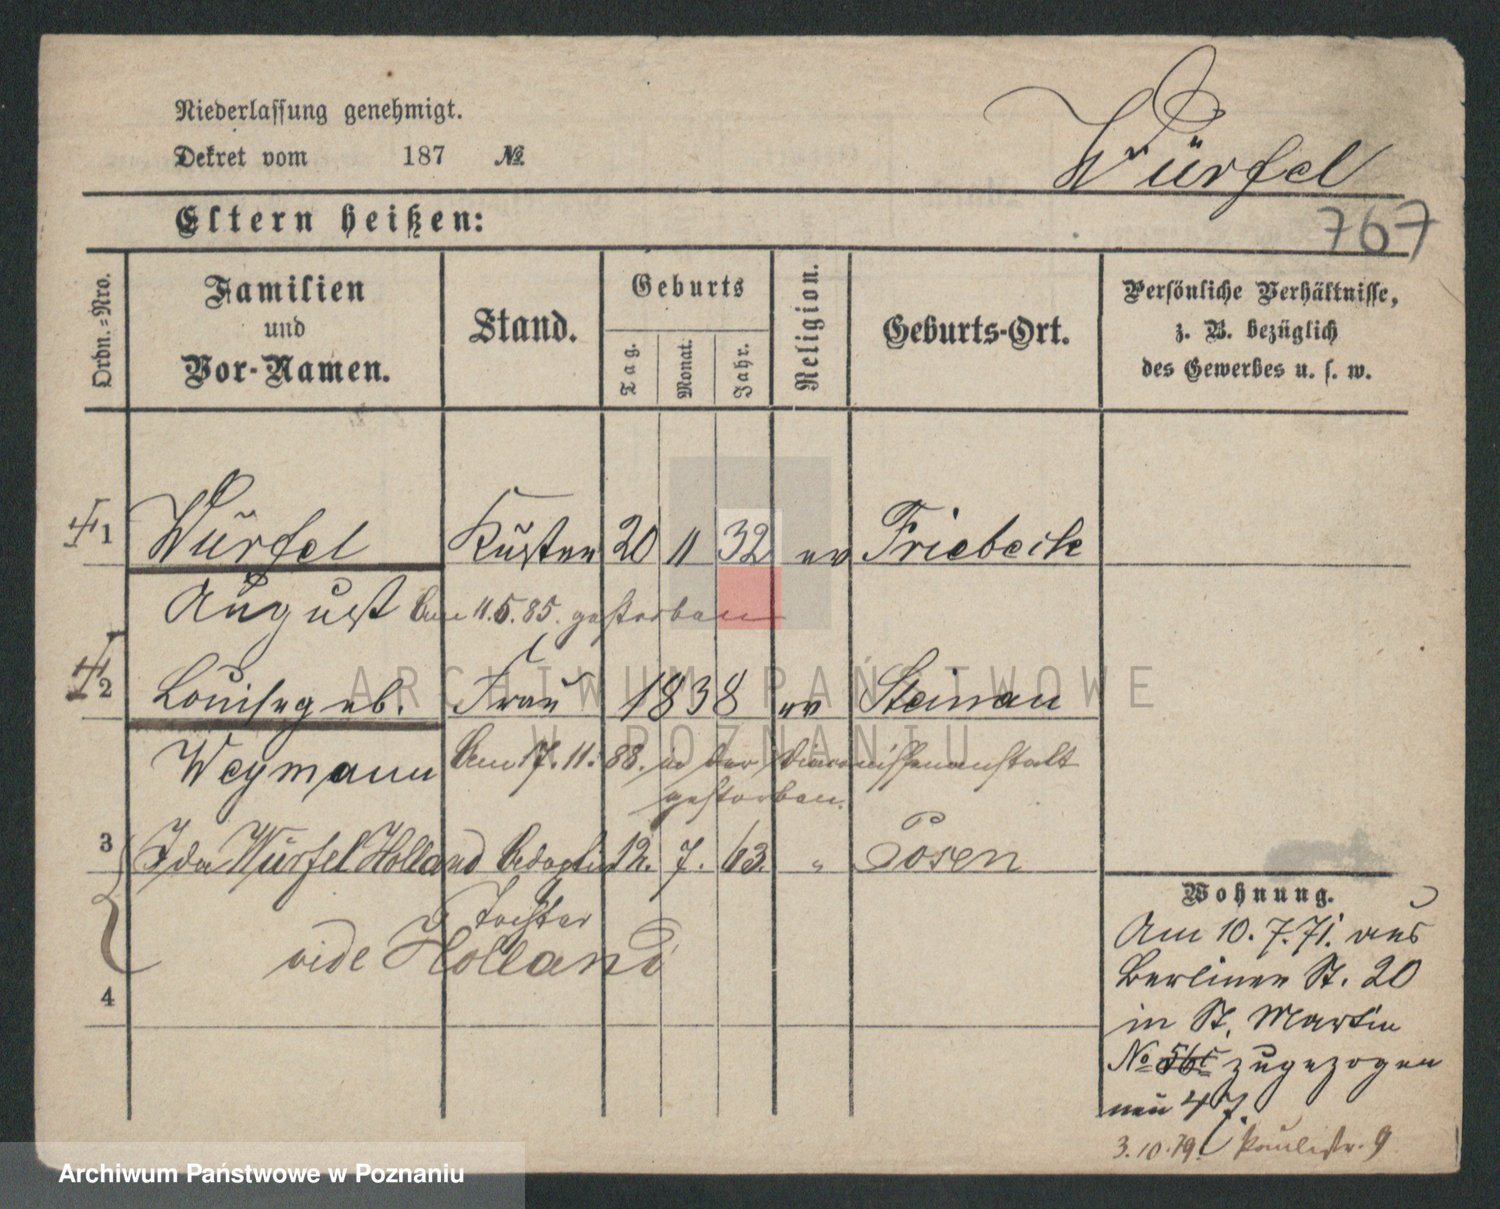 Niederlassung genehmigt.
Dekret vom 187 №
Würfel
Eltern heißen:
767
Ordn.=Nro.
Familien
und
Vor-Namen.
Stand.
Geburts
Tag.
Monat.
Jahr.
Religion.
Geburts-Ort.
Persönliche Verhältnisse,
z. B. bezüglich
des Gewerbes u. s. w.
1 Würfel Küster 20 11 32 ev Friebeck
August Am 11.5.85. gestorben
2 Louise geb. Frau 1838 ev Steinau
Weymann Am 17.11.88. in der Diaconissenanstalt
gestorben.
3 Ida Würfel Holland Adoptiv 12. 7. 63. " Posen
Tochter
vide Holland
4
Wohnung.
Am 10.7.71. aus
Berliner St. 20
in St. Martin
No 56 zugezogen
neu 47.
3.10.79. Paulistr. 9
ARCHIWUM PAŃSTWOWE
W POZNANIU
Archiwum Państwowe w Poznaniu